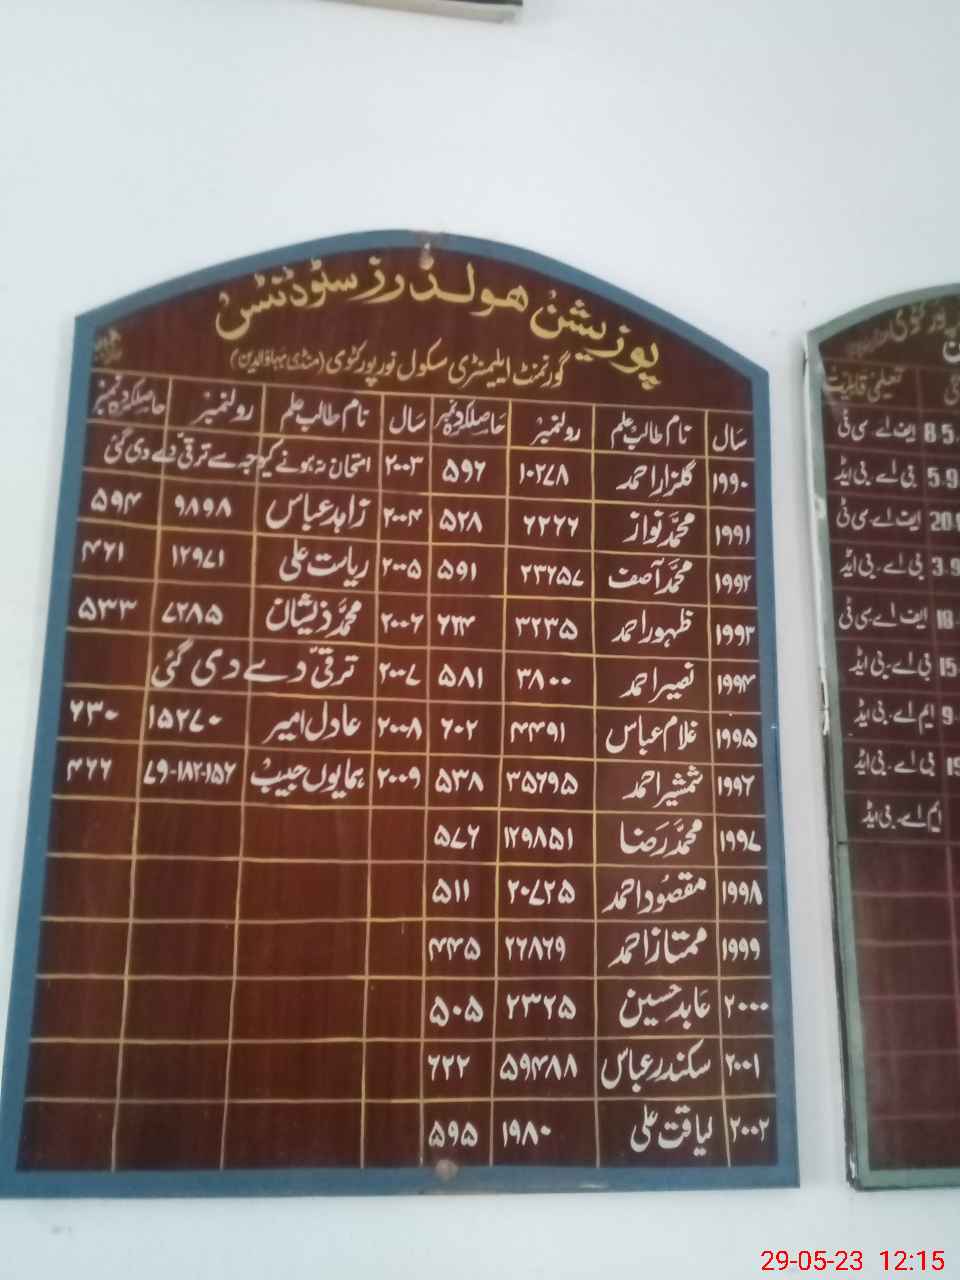 پوزیشن ہولڈرز سٹوڈنٹس
گورنمنٹ ایلیمنٹری سکول نور پور کٹوی (منڈی بہاؤالدین)
سال نام طالب علم رولنمبر حاصلکردہ نمبر سال نام طالب علم رولنمبر حاصلکردہ نمبر
۱۹۹۰ گلزار احمد ۱۰۲۷۸ ۵۹۶ ۲۰۰۳ امتحان نہ ہونے کیوجہ سے ترقی دے دی گئی
۱۹۹۱ محمد نواز ۶۲۶۶ ۵۲۸ ۲۰۰۴ زاہد عباس ۹۸۹۸ ۵۹۴
۱۹۹۲ محمد آصف ۲۳۶۵۷ ۵۹۱ ۲۰۰۵ ریاست علی ۱۲۹۷۱ ۴۶۱
۱۹۹۳ ظہور احمد ۳۲۳۵ ۶۲۴ ۲۰۰۶ محمد ذیشان ۷۲۸۵ ۵۳۳
۱۹۹۴ نصیر احمد ۳۸۰۰ ۵۸۱ ۲۰۰۷ ترقی دے دی گئی
۱۹۹۵ غلام عباس ۴۴۹۱ ۶۰۲ ۲۰۰۸ عادل امیر ۱۵۲۷۰ ۶۳۰
۱۹۹۶ شمشیر احمد ۳۵۶۹۵ ۵۳۸ ۲۰۰۹ ہمایوں حبیب ۷۹-۱۸۲-۱۵۶ ۴۶۶
۱۹۹۷ محمد رضا ۱۲۹۸۵۱ ۵۷۶
۱۹۹۸ مقصود احمد ۲۰۷۲۵ ۵۱۱
۱۹۹۹ ممتاز احمد ۲۶۸۶۹ ۴۴۵
۲۰۰۰ عابد حسین ۲۳۲۵ ۵۰۵
۲۰۰۱ سکندر عباس ۵۹۴۸۸ ۶۲۲
۲۰۰۲ لیاقت علی ۱۹۸۰ ۵۹۵
تعلیمی قابلیت
ایف اے سی ٹی 8-5
بی اے۔ بی ایڈ 5-9
ایف اے سی ٹی 20
بی اے۔ بی ایڈ 3-9
ایف اے سی ٹی 18-
بی اے۔ بی ایڈ 15-
ایم اے۔ بی ایڈ 9-
بی اے۔ بی ایڈ 19
ایم اے۔ بی ایڈ
29-05-23 12:15